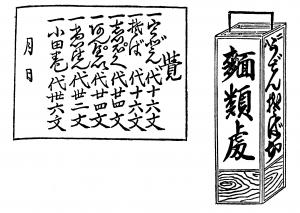 うどんそば切
麵類處
覺
一うどん 代十六文
一そば 代十六文
一志つぽく 代廿四文
一あんぺい 代廿四文
一 代卅二文
一小田巻 代卅六文
月 日